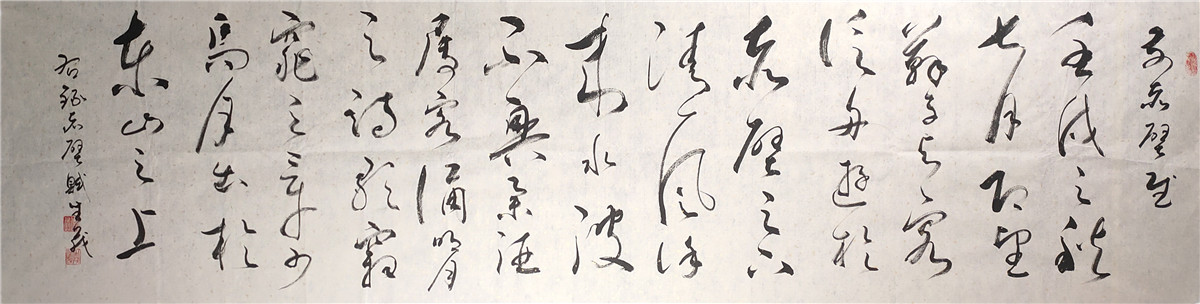 前赤壁賦
壬戌之秋
七月既望
蘇子与客
泛舟遊於
赤壁之下
清風徐
来水波
不興舉酒
屬客誦明月
之詩歌窈
窕之章少
焉月出於
東山之上
右録赤壁賦